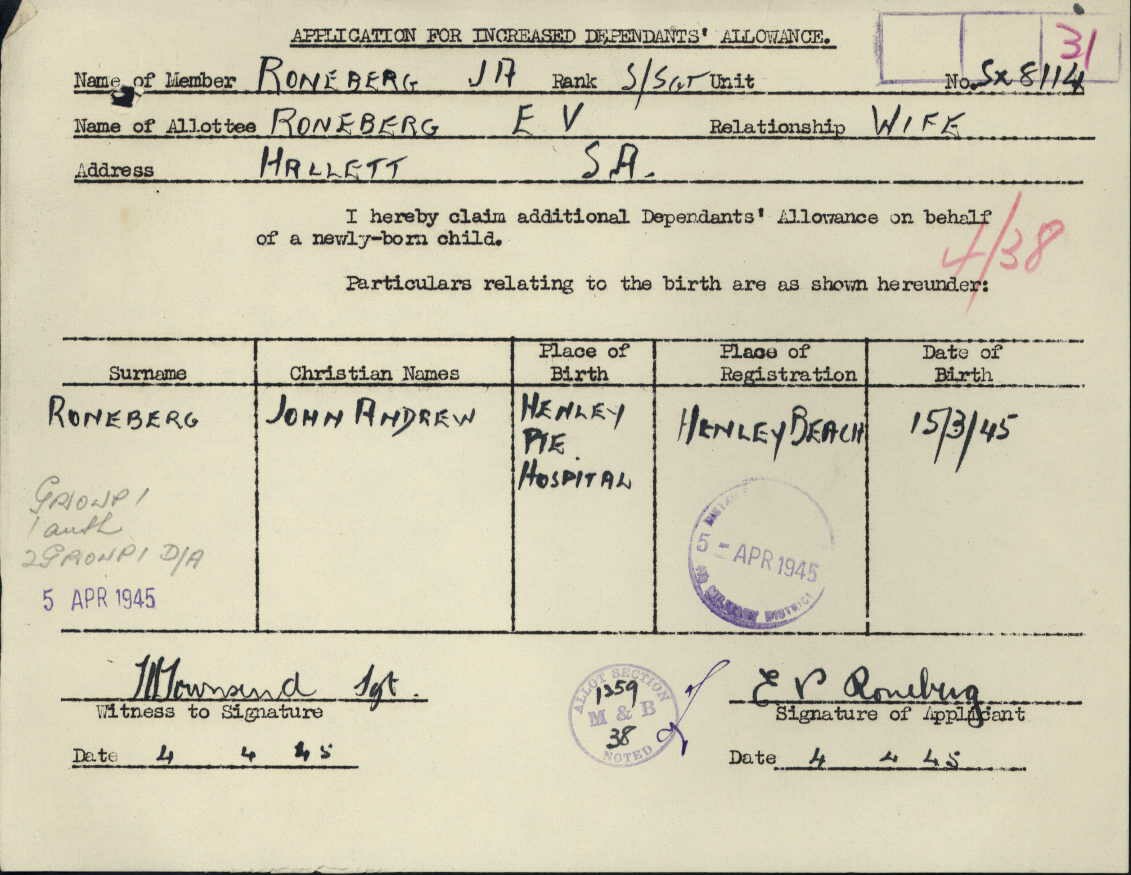 APPLICATION FOR INCREASED DEPENDANTS' ALLOWANCE.
31
Name of Member RONEBERG JA Rank S/SGT Unit No. SX8114
Name of Allottee RONEBERG E V Relationship WIFE
Address HALLETT S.A.
I hereby claim additional Dependants' Allowance on behalf
of a newly-born child.
4/38
Particulars relating to the birth are as shown hereunder:
Surname Christian Names Place of Birth Place of Registration Date of Birth
RONEBERG JOHN ANDREW HENLEY PTE. HOSPITAL HENLEY BEACH 15/3/45
1 auth
D/A
5 APR 1945
5 - APR 1945
MILITARY DISTRICT
Townsend Sgt. E V Roneberg
Witness to Signature Signature of Applicant
ALLOT SECTION
1259
M & B
38
NOTED
Date 4 4 45 Date 4 4 45